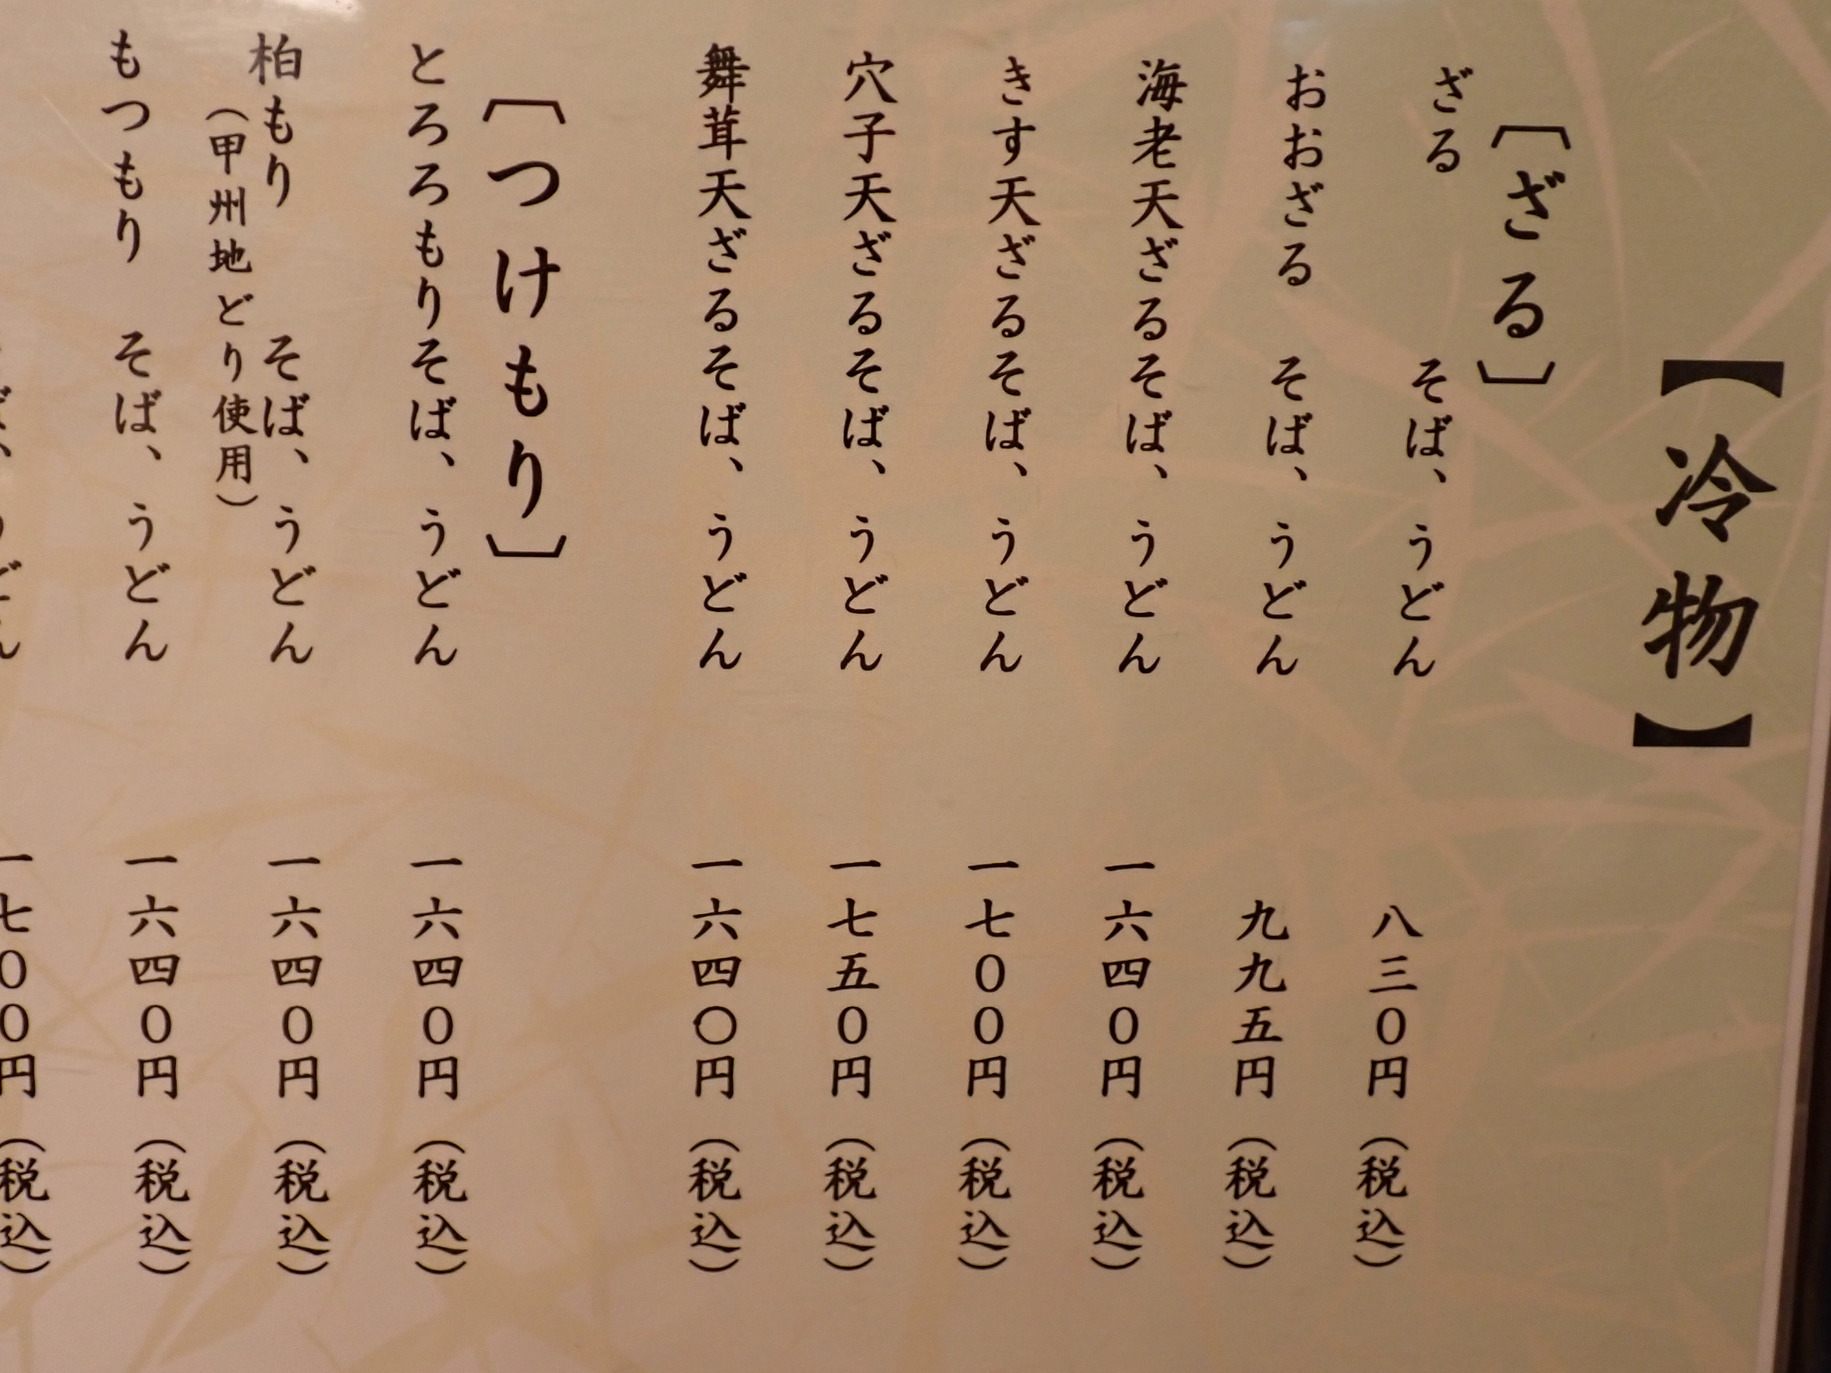 【冷物】
〔ざる〕
ざる　そば、うどん　八三〇円（税込）
おおざる　そば、うどん　九九五円（税込）
海老天ざるそば、うどん　一六四〇円（税込）
きす天ざるそば、うどん　一七〇〇円（税込）
穴子天ざるそば、うどん　一七五〇円（税込）
舞茸天ざるそば、うどん　一六四〇円（税込）
〔つけもり〕
とろろもりそば、うどん　一六四〇円（税込）
柏もり　そば、うどん　一六四〇円（税込）
（甲州地どり使用）
もつもり　そば、うどん　一六四〇円（税込）
そば、うどん　一七〇〇円（税込）